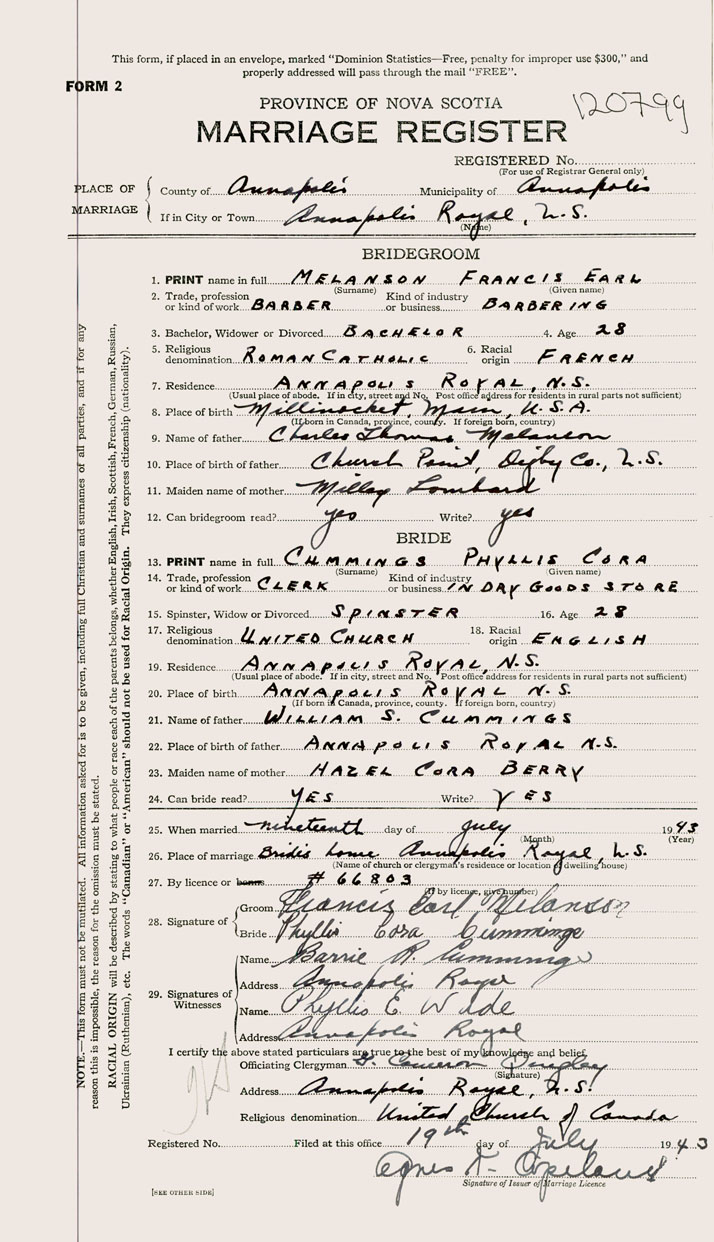 This form, if placed in an envelope, marked "Dominion Statistics—Free, penalty for improper use $300," and
properly addressed will pass through the mail "FREE".
FORM 2
120799
PROVINCE OF NOVA SCOTIA
MARRIAGE REGISTER
REGISTERED No.
(For use of Registrar General only)
PLACE OF MARRIAGE
County of Annapolis Municipality of Annapolis
If in City or Town Annapolis Royal, N.S.
(Name)
BRIDEGROOM
1. PRINT name in full MELANSON FRANCIS EARL
(Surname) (Given name)
2. Trade, profession or kind of work BARBER Kind of industry or business BARBERING
3. Bachelor, Widower or Divorced BACHELOR 4. Age 28
5. Religious denomination ROMAN CATHOLIC 6. Racial origin FRENCH
7. Residence ANNAPOLIS ROYAL, N.S.
(Usual place of abode. If in city, street and No. Post office address for residents in rural parts not sufficient)
8. Place of birth Millinocket, Main, U.S.A.
(If born in Canada, province, county. If foreign born, country)
9. Name of father Charles Thomas Melanson
10. Place of birth of father Church Point, Digby Co., N.S.
11. Maiden name of mother Lombard
12. Can bridegroom read? yes Write? yes
BRIDE
13. PRINT name in full CUMMINGS PHYLLIS CORA
(Surname) (Given name)
14. Trade, profession or kind of work CLERK Kind of industry or business IN DRY GOODS STORE
15. Spinster, Widow or Divorced SPINSTER 16. Age 28
17. Religious denomination UNITED CHURCH 18. Racial origin ENGLISH
19. Residence ANNAPOLIS ROYAL, N.S.
(Usual place of abode. If in city, street and No. Post office address for residents in rural parts not sufficient)
20. Place of birth ANNAPOLIS ROYAL N.S.
(If born in Canada, province, county. If foreign born, country)
21. Name of father WILLIAM S. CUMMINGS
22. Place of birth of father ANNAPOLIS ROYAL N.S.
23. Maiden name of mother HAZEL CORA BERRY
24. Can bride read? YES Write? YES
25. When married nineteenth day of July 1943
(Month) (Year)
26. Place of marriage Brid's home Annapolis Royal, N.S.
(Name of church or clergyman's residence or location of dwelling house)
27. By licence or banns # 66803
(If by licence, give number)
28. Signature of
Groom Francis Earl Melanson
Bride Phyllis Cora Cummings
29. Signatures of Witnesses
Name Barrie R. Cummings
Address Annapolis Royal
Name Phyllis E Wade
Address Annapolis Royal
I certify the above stated particulars are true to the best of my knowledge and belief.
Officiating Clergyman Cameron
(Signature)
Address Annapolis Royal, N.S.
Religious denomination United Church of Canada
Registered No. Filed at this office 19th day of July 1943
Agnes Copeland
Signature of Issuer of Marriage Licence
[SEE OTHER SIDE]
NOTE.—This form must not be mutilated. All information asked for is to be given, including full Christian and surnames of all parties, and if for any
reason this is impossible, the reason for the omission must be stated.
RACIAL ORIGIN will be described by stating to what people or race each of the parents belongs, whether English, Irish, Scottish, French, German, Russian,
Ukrainian (Ruthenian), etc. The words "Canadian" or "American" should not be used for Racial Origin. They express citizenship (nationality).